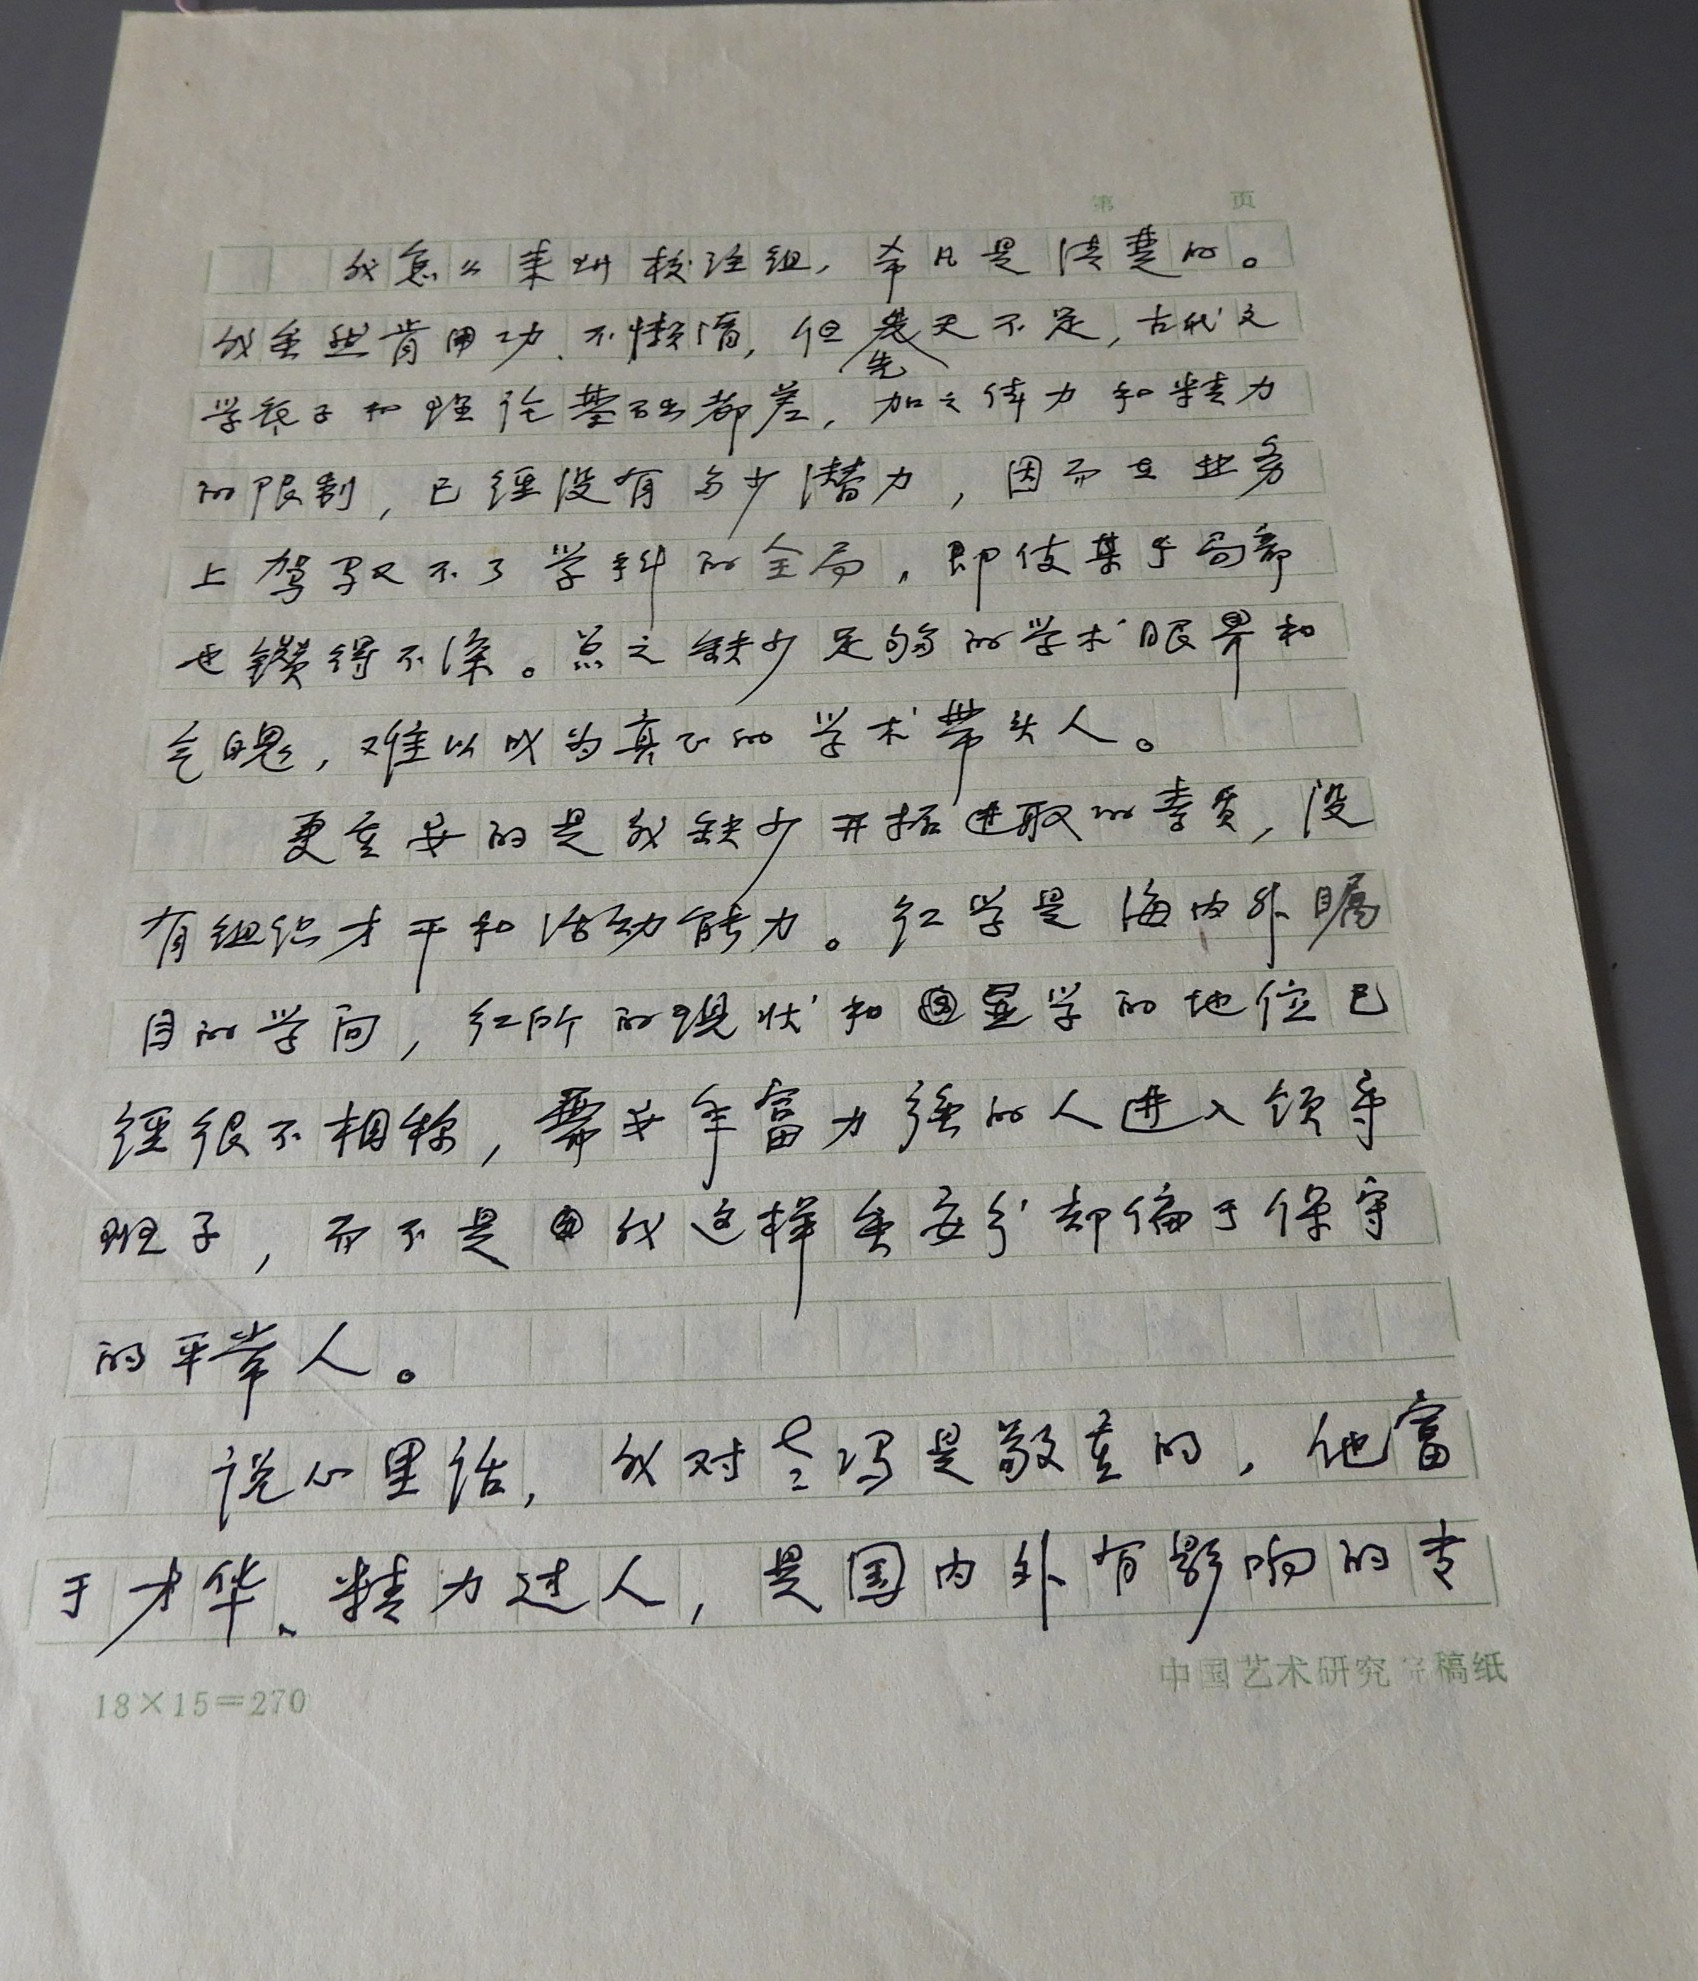 第 页
我怎么来到校注组，希凡是清楚的。
我虽然肯用功、不懒惰，但先天不足，古代文
学底子和理论基础都差，加之体力和精力
的限制，已经没有多少潜力，因而在业务
上驾驭不了学科的全局，即使某个局部
也钻得不深。总之缺少足够的学术眼界和
气魄，难以成为真正的学术带头人。
更重要的是我缺少开拓进取的素质，没
有组织才干和活动能力。红学是海内外瞩
目的学问，红所的现状和显学的地位已
经很不相称，需要年富力强的人进入领导
班子，而不是我这样虽安分却偏于保守
的平常人。
说心里话，我对老冯是敬重的，他富
于才华、精力过人，是国内外有影响的专
18×15=270
中国艺术研究院稿纸